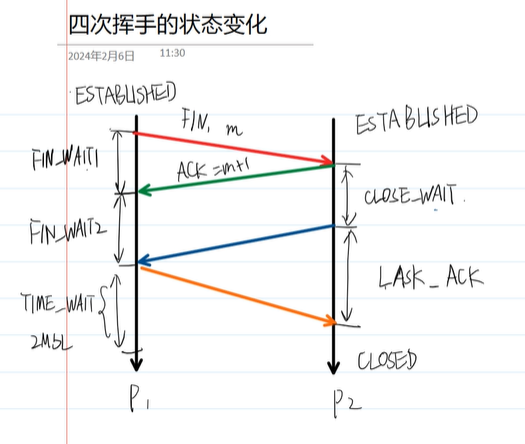 四次挥手的状态变化
2024年2月6日 11:30
ESTABLISHED
FIN, m
ESTABLISHED
FIN_WAIT1
ACK=m+1
CLOSE_WAIT.
FIN_WAIT2
LASK_ACK
TIME_WAIT
2MSL
CLOSED
P1
P2